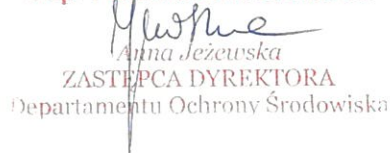 Anna Jeżewska
ZASTĘPCA DYREKTORA
Departamentu Ochrony Środowiska